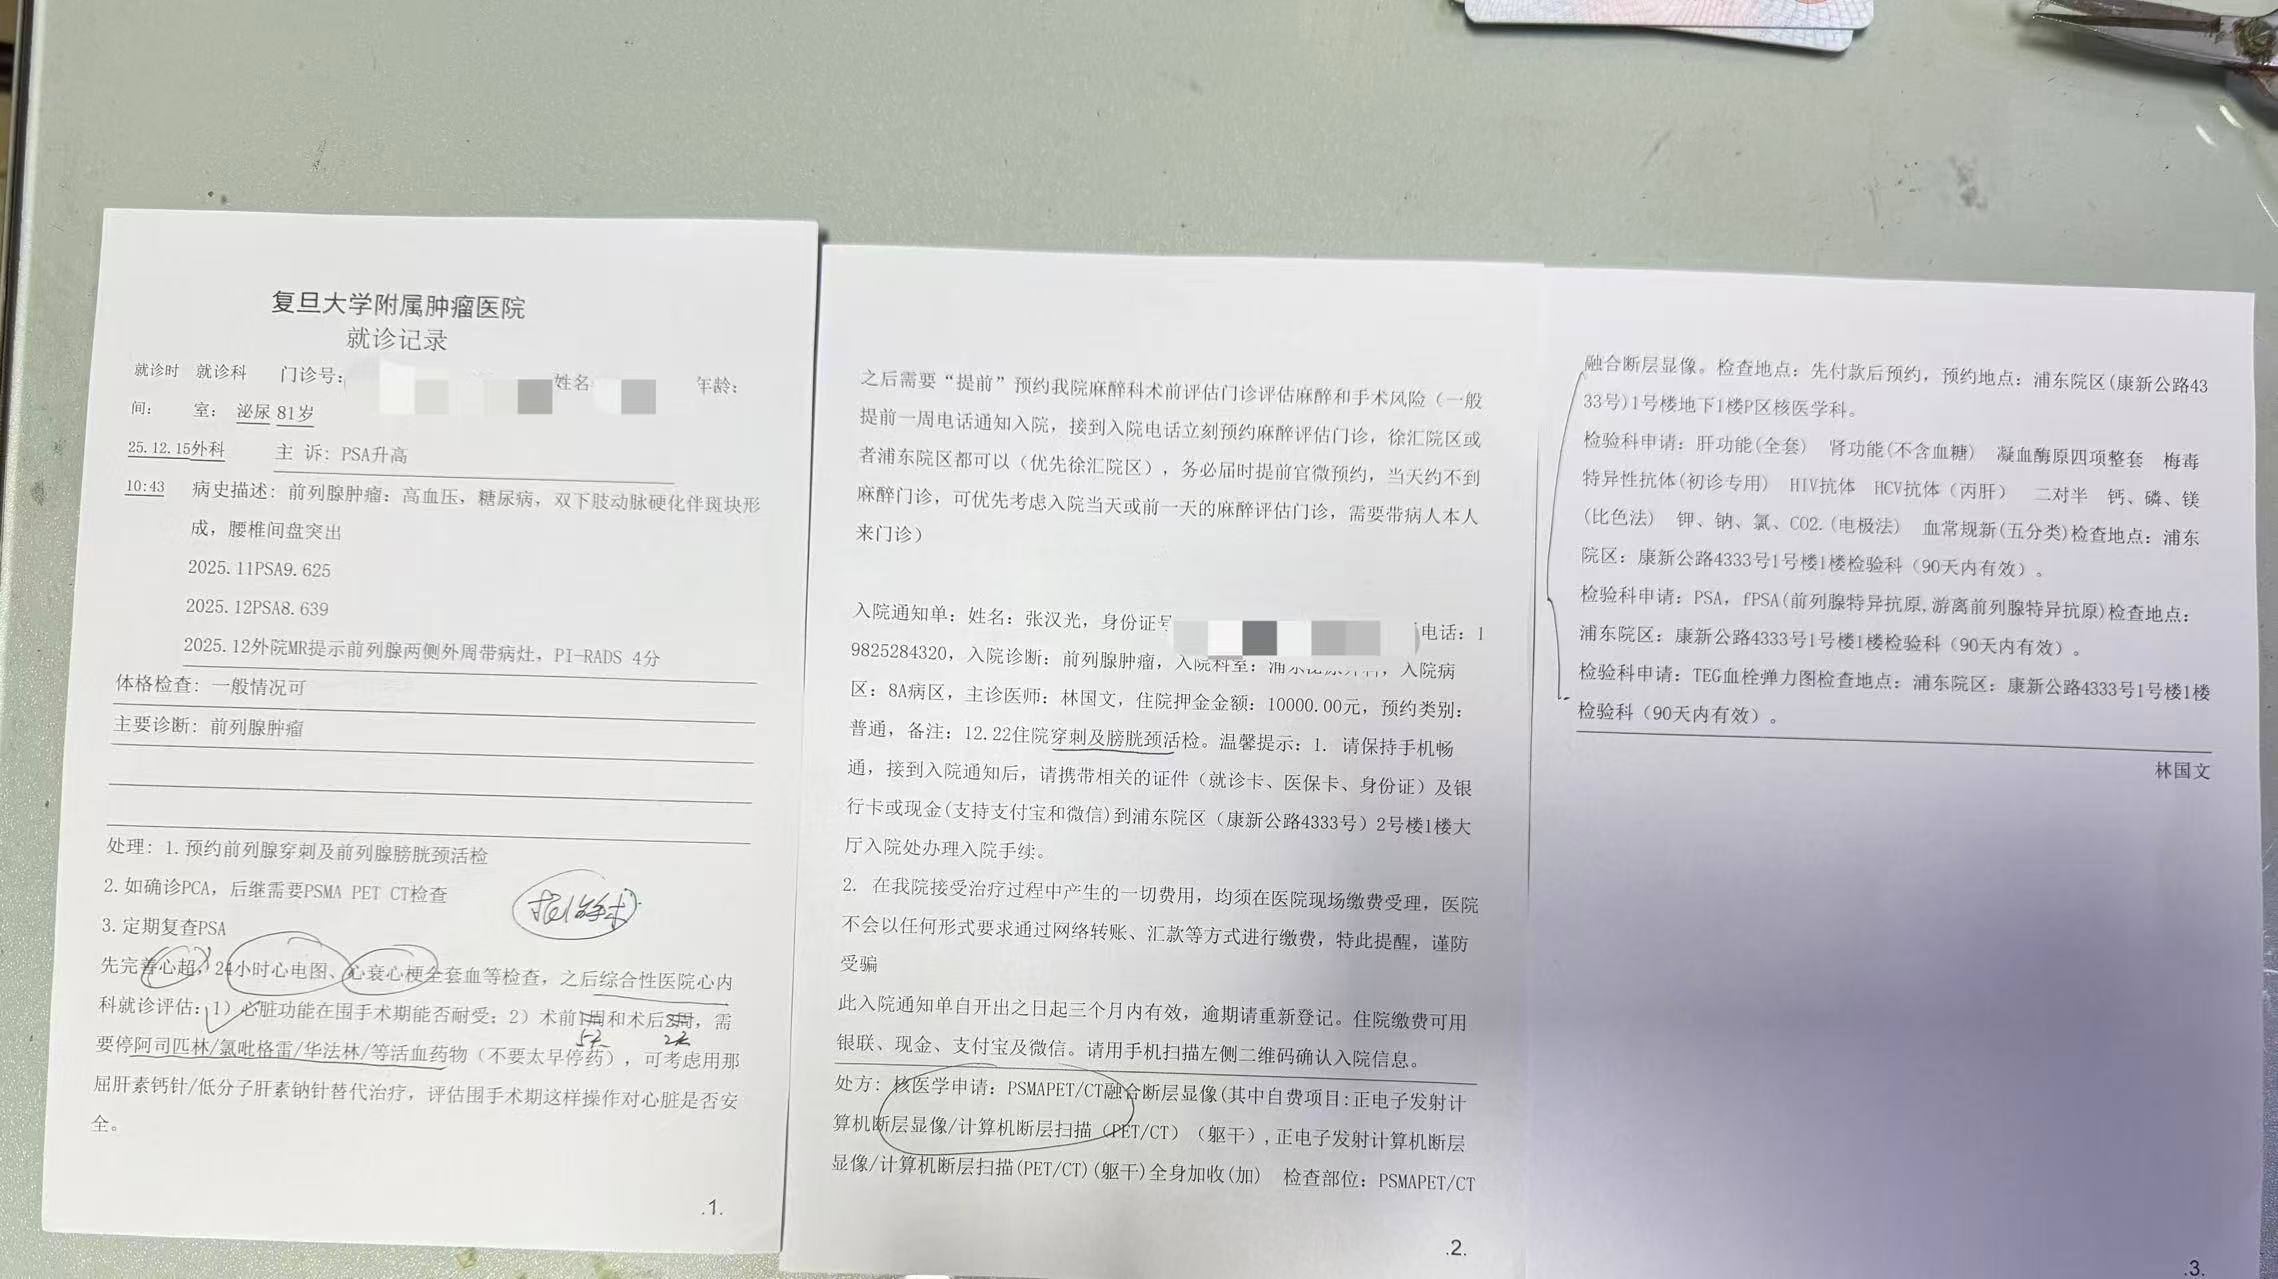 复旦大学附属肿瘤医院
就诊记录
就诊时 就诊科 门诊号: 姓名 年龄:
间: 室: 泌尿 81岁
25.12.15外科 主 诉: PSA升高
10:43 病史描述: 前列腺肿瘤: 高血压, 糖尿病, 双下肢动脉硬化伴斑块形
成, 腰椎间盘突出
2025.11PSA9.625
2025.12PSA8.639
2025.12外院MR提示前列腺两侧外周带病灶, PI-RADS 4分
体格检查: 一般情况可
主要诊断: 前列腺肿瘤
处理: 1.预约前列腺穿刺及前列腺膀胱颈活检
2.如确诊PCA, 后继需要PSMA PET CT检查
3.定期复查PSA
先完善心超, 24小时心电图、心衰心梗全套血等检查, 之后综合性医院心内
科就诊评估: 1) 心脏功能在围手术期能否耐受; 2) 术前1周和术后2周, 需
5天 2天
要停阿司匹林/氯吡格雷/华法林/等活血药物 (不要太早停药), 可考虑用那
屈肝素钙针/低分子肝素钠针替代治疗, 评估围手术期这样操作对心脏是否安
全。
.1.
之后需要“提前”预约我院麻醉科术前评估门诊评估麻醉和手术风险 (一般
提前一周电话通知入院, 接到入院电话立刻预约麻醉评估门诊, 徐汇院区或
者浦东院区都可以 (优先徐汇院区), 务必届时提前官微预约, 当天约不到
麻醉门诊, 可优先考虑入院当天或前一天的麻醉评估门诊, 需要带病人本人
来门诊)
入院通知单: 姓名: 张汉光, 身份证号 电话: 1
9825284320, 入院诊断: 前列腺肿瘤, 入院科室: 浦东泌尿外科, 入院病
区: 8A病区, 主诊医师: 林国文, 住院押金金额: 10000.00元, 预约类别:
普通, 备注: 12.22住院穿刺及膀胱颈活检。温馨提示: 1. 请保持手机畅
通, 接到入院通知后, 请携带相关的证件 (就诊卡、医保卡、身份证) 及银
行卡或现金(支持支付宝和微信)到浦东院区 (康新公路4333号) 2号楼1楼大
厅入院处办理入院手续。
2. 在我院接受治疗过程中产生的一切费用, 均须在医院现场缴费受理, 医院
不会以任何形式要求通过网络转账、汇款等方式进行缴费, 特此提醒, 谨防
受骗
此入院通知单自开出之日起三个月内有效, 逾期请重新登记。住院缴费可用
银联、现金、支付宝及微信。请用手机扫描左侧二维码确认入院信息。
处方: 核医学申请: PSMAPET/CT融合断层显像(其中自费项目:正电子发射计
算机断层显像/计算机断层扫描 (PET/CT) (躯干),正电子发射计算机断层
显像/计算机断层扫描(PET/CT)(躯干)全身加收(加) 检查部位: PSMAPET/CT
.2.
融合断层显像。检查地点: 先付款后预约, 预约地点: 浦东院区(康新公路43
33号)1号楼地下1楼P区核医学科。
检验科申请: 肝功能(全套) 肾功能(不含血糖) 凝血酶原四项整套 梅毒
特异性抗体(初诊专用) HIV抗体 HCV抗体 (丙肝) 二对半 钙、磷、镁
(比色法) 钾、钠、氯、CO2.(电极法) 血常规新(五分类)检查地点: 浦东
院区: 康新公路4333号1号楼1楼检验科 (90天内有效) 。
检验科申请: PSA, fPSA(前列腺特异抗原,游离前列腺特异抗原)检查地点:
浦东院区: 康新公路4333号1号楼1楼检验科 (90天内有效) 。
检验科申请: TEG血栓弹力图检查地点: 浦东院区: 康新公路4333号1号楼1楼
检验科 (90天内有效) 。
林国文
.3.